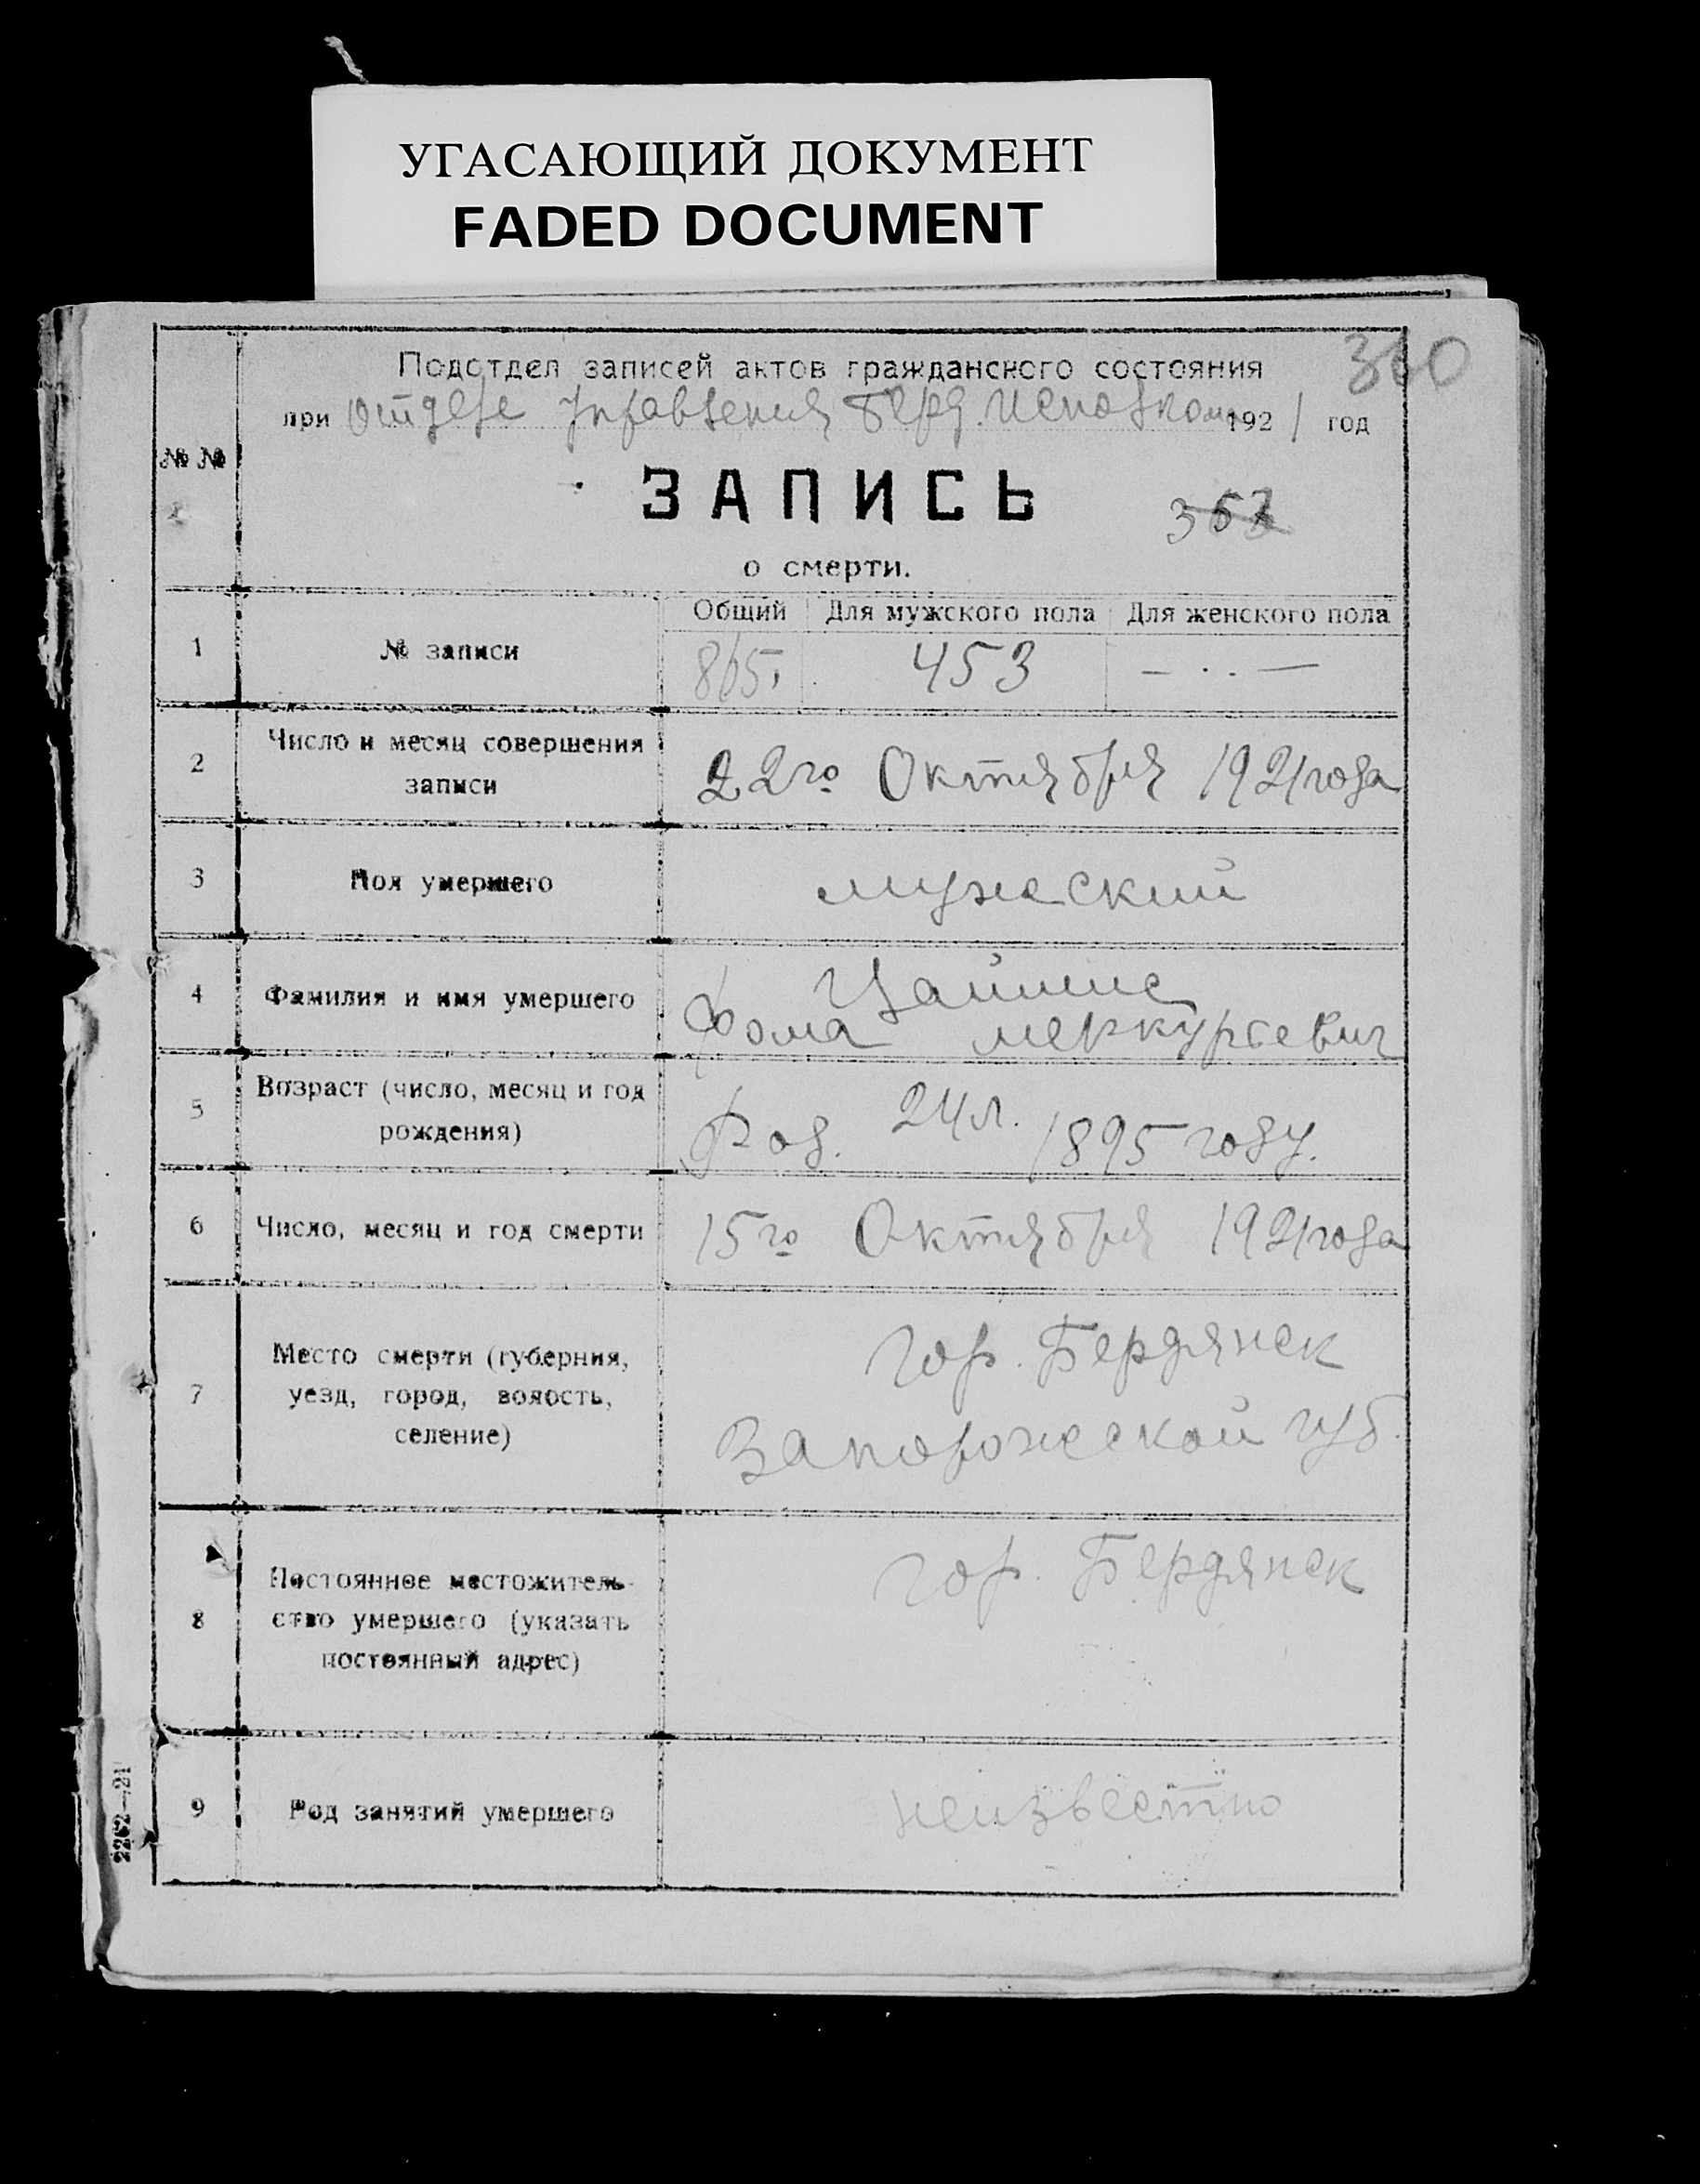 УГАСАЮЩИЙ ДОКУМЕНТ
FADED DOCUMENT
360
Подотдел записей актов гражданского состояния
при отделе управления Берд. исполкома 1921 год
№ №
ЗАПИСЬ
о смерти.
Общий Для мужского пола Для женского пола
1 № записи 865, 453 — . . —
2 Число и месяц совершения
записи
22го Октября 1921 года
3 Пол умершего мужеский
4 Фамилия и имя умершего
Фома меркурьевич
5 Возраст (число, месяц и год
рождения)
24 л.
Род. 1895 году.
6 Число, месяц и год смерти 15го Октября 1921 года
7 Место смерти (губерния,
уезд, город, волость,
селение)
гор. Бердянск
Запорожеской губ.
8 Постоянное местожитель-
ство умершего (указать
постоянный адрес)
гор. Бердянск
9 Род занятий умершего неизвестно
2262—21